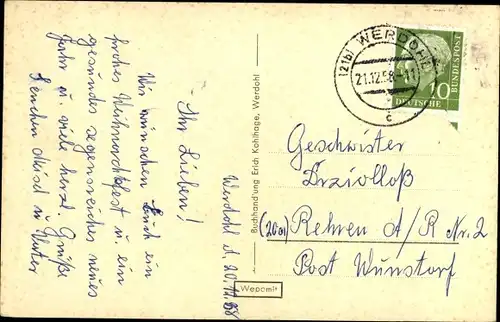 Werdohl d. 20.12.58
Ihr Lieben!
Wir wünschen Euch ein
frohes Weihnachtsfest u. ein
gesundes segensreiches neues
Jahr u. viele herzl. Grüße
Buchhandlung Erich Kohlhage, Werdohl
Wepomit
(21b) WERDOHL
21.12.58-11
c
10
DEUTSCHE
BUNDESPOST
Geschwister
(20a) Rehren A/R Nr. 2
Post Wunstorf